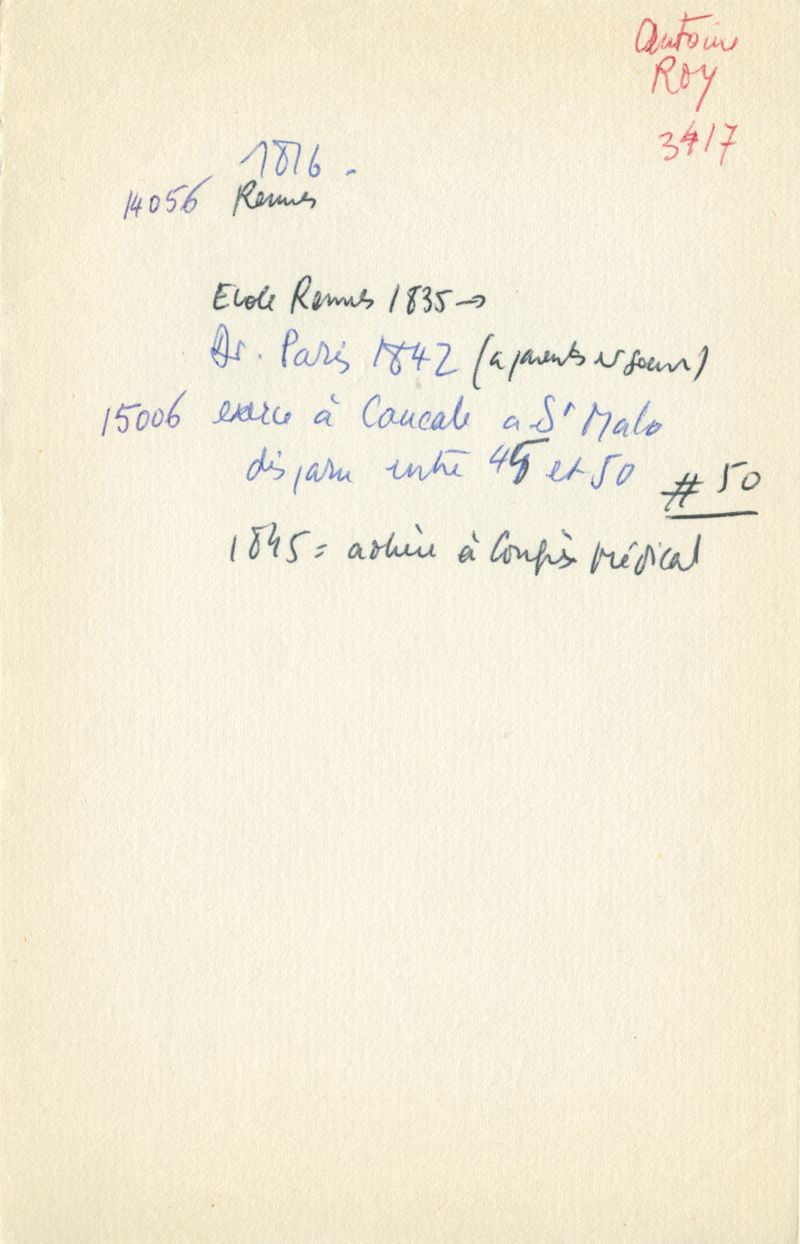 Antoine
ROY
3417
1816 -
14056 Rennes
Ecole Rennes 1835 →
Dr. Paris 1842 (a parents et soeur)
15006 exerce à Cancale a St Malo
disparu entre 45 et 50 # 50
1845 = adhère à Congrès Médical